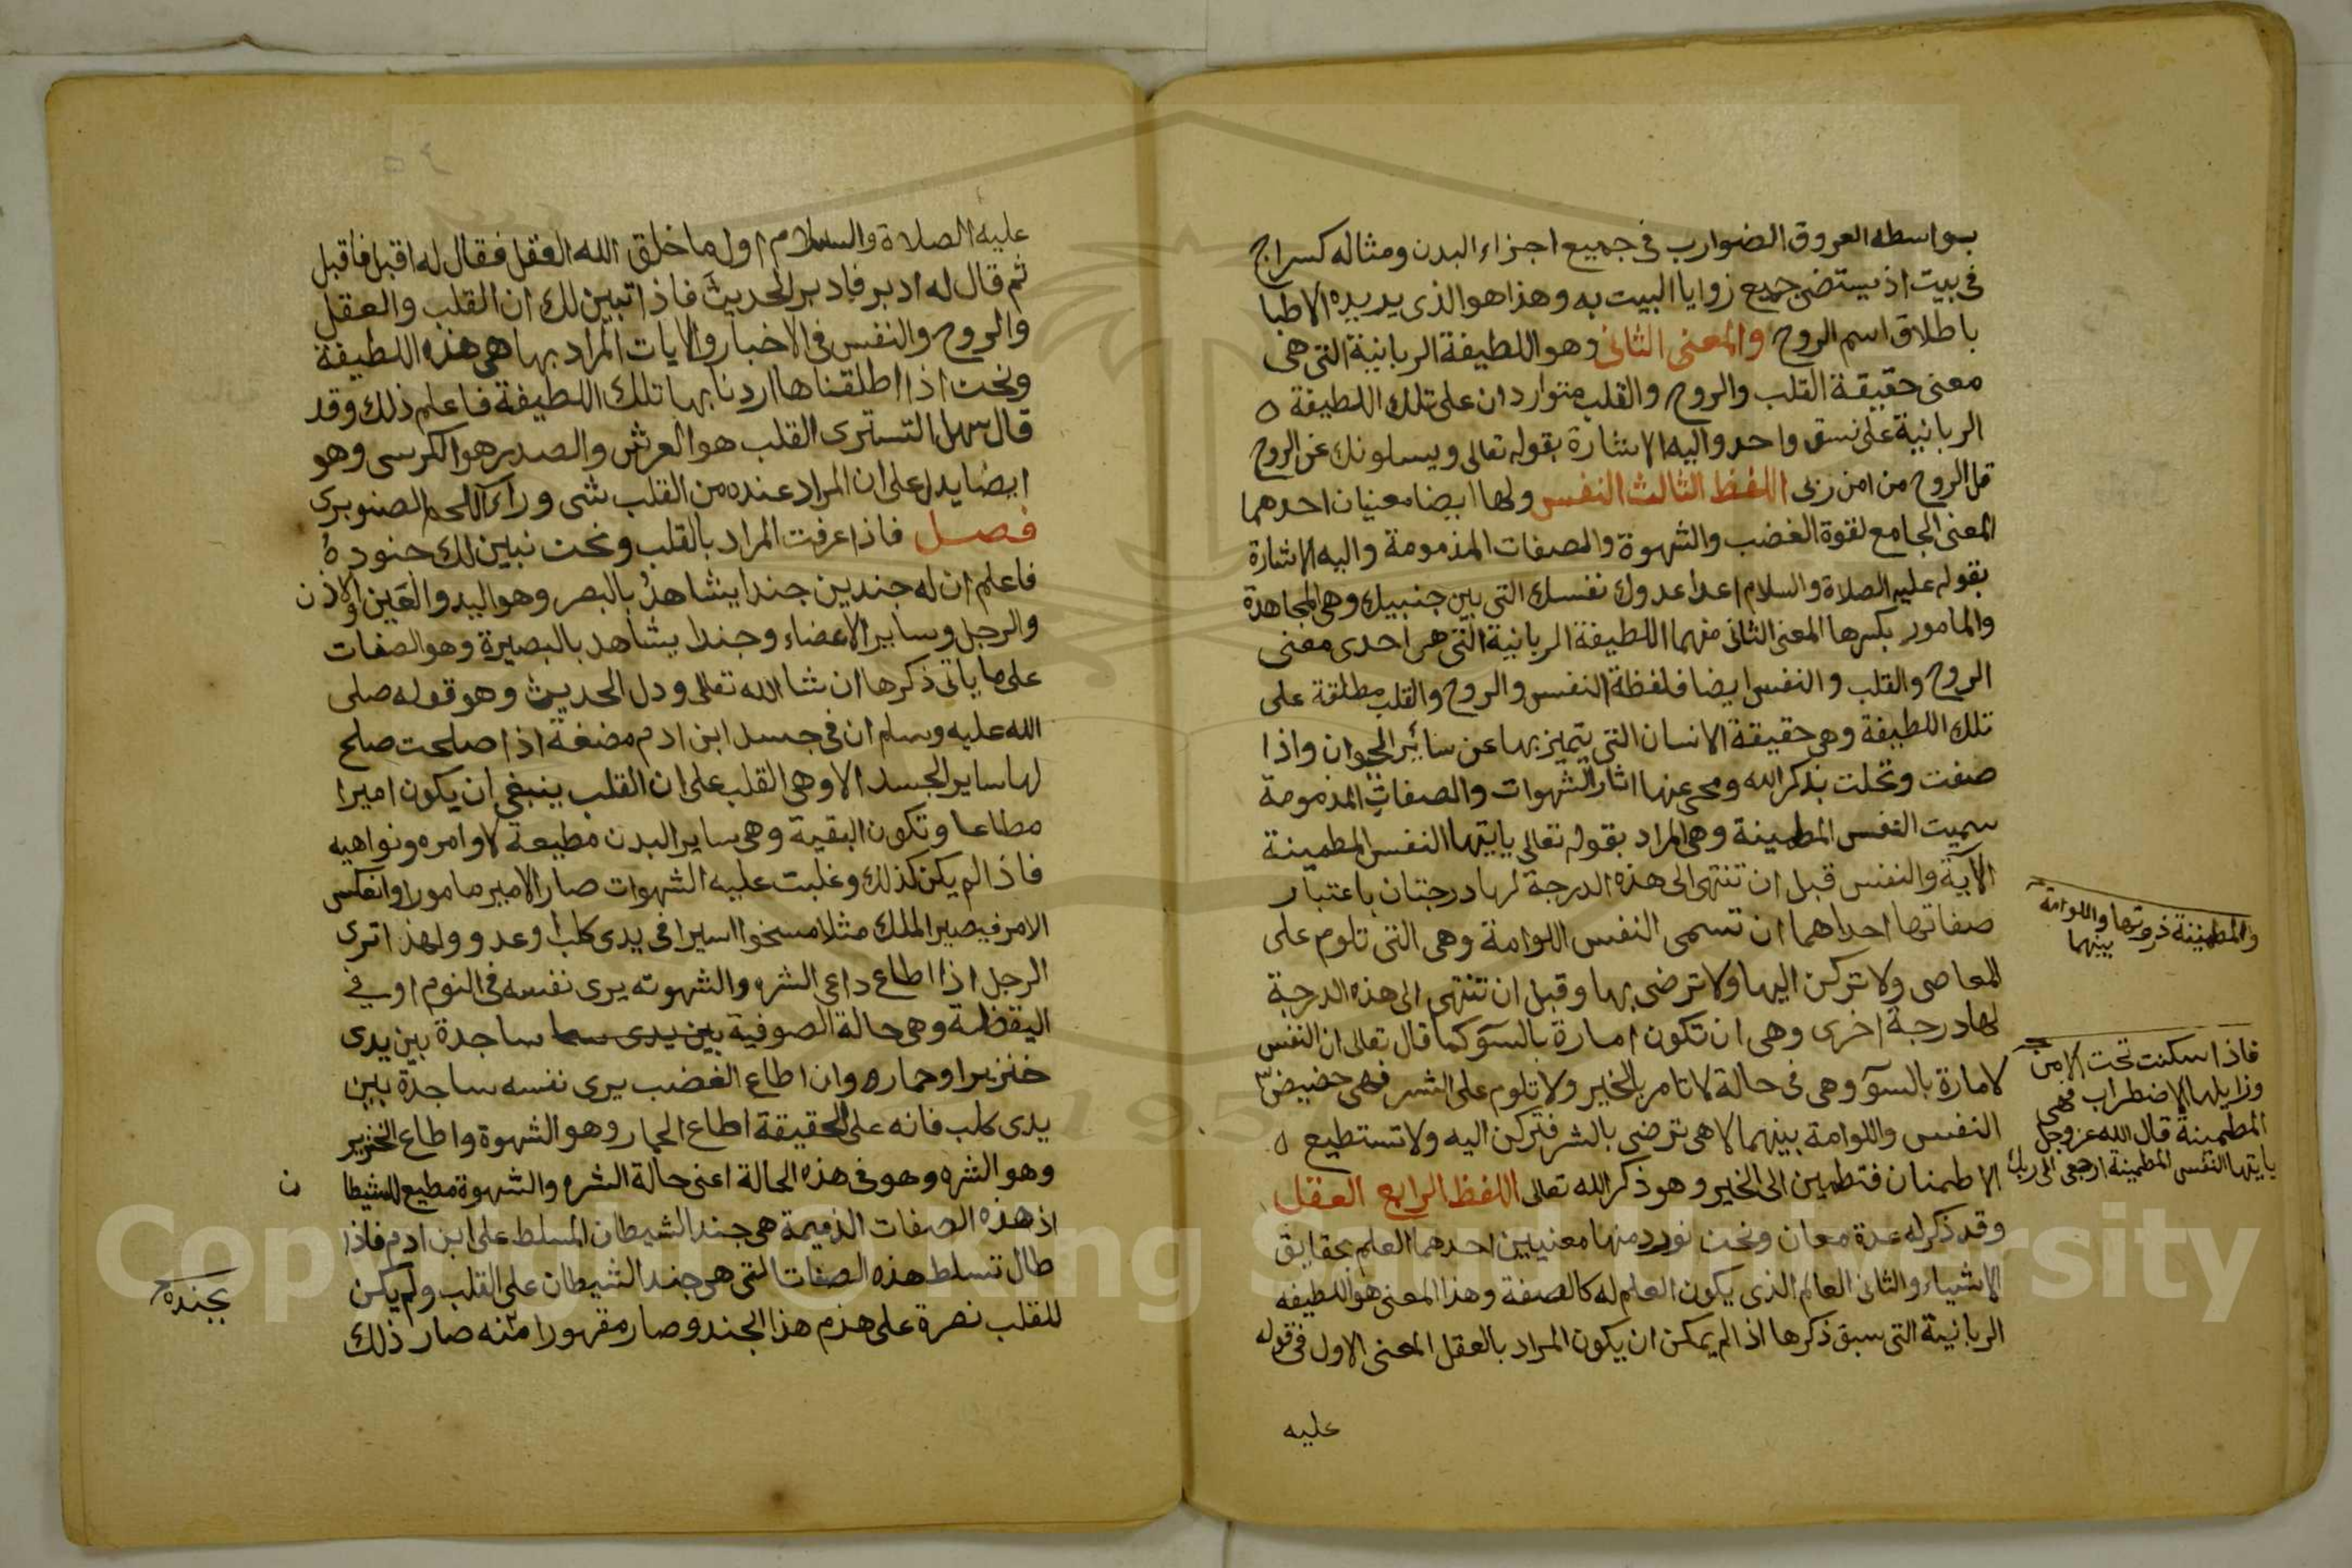 بواسطه العروق الضوارب فى جميع اجزاء البدن ومثاله كسراج
فى بيت اذ يستضى جميع زوايا البيت به وهذا هو الذى يريده الاطبا
باطلاق اسم الروح والمعنى الثانى وهو اللطيفة الربانية التى هى
معنى حقيقة القلب والروح والقلب متواردان على تلك اللطيفة ه
الربانية على نسق واحد واليه الاشارة بقوله تعالى ويسلونك عن الروح
قل الروح من امر ربى اللفظ الثالث النفس ولها ايضا معنيان احدهما
المعنى الجامع لقوة الغضب والشهوة والصفات المذمومة واليه الاشارة
بقوله عليه الصلاة والسلام اعدا عدوك نفسك التى بين جنبيك وهى المجاهدة
والمامور بكسرها المعنى الثانى منهما اللطيفة الربانية التى هى احدى معنى
الروح والقلب والنفس ايضا فلفظة النفس والروح والقلب مطلقة على
تلك اللطيفة وهى حقيقة الانسان التى يتميز بها عن سائر الحيوان واذا
صفت وتحلت بذكر الله ومحى عنها اثار الشهوات والصفات المذمومة
سميت النفس المطمينة وهى المراد بقوله تعالى يايتها النفس المطمينة
الآية والنفس قبل ان تنتهى الى هذه الدرجة لها درجتان باعتبار
صفاتها احداهما ان تسمى النفس اللوامة وهى التى تلوم على
المعاصى ولا تركن اليها ولا ترضى بها وقبل ان تنتهى الى هذه الدرجة
لها درجة اخرى وهى ان تكون امارة بالسوء كما قال تعالى ان النفس
لامارة بالسوء وهى فى حالة لا تامر بالخير ولا تلوم على الشر فهى حضيض
النفس واللوامة بينهما لا هى ترضى بالشر فتركن اليه ولا تستطيع ه
الاطمنان فتطمين الى الخير وهو ذكر الله تعالى اللفظ الرابع العقل
وقد ذكر له عدة معان ونحن نورد منها معنيين احدهما العلم بحقايق
الاشياء والثانى العالم الذى يكون العلم له كالصفة وهذا المعنى هو اللطيفه
الربانية التى سبق ذكرها اذ الم يمكن ان يكون المراد بالعقل المعنى الاول فى قوله
عليه
والمطمينة ذروتها واللوامة
بينهما
فاذا سكنت تحت الامر
وزايلها الاضطراب فهى
المطمينة قال الله عز وجل
يايتها النفس المطمينة ارجعى الى ربك
عليه الصلاة والسلام اول ما خلق الله العقل فقال له اقبل فاقبل
ثم قال له ادبر فادبر الحديث فاذا تبين لك ان القلب والعقل
والروح والنفس فى الاخبار والايات المراد بها هى هذه اللطيفة
ونحن اذا اطلقناها اردنا بها تلك اللطيفة فاعلم ذلك وقد
قال سهل التسترى القلب هو العرش والصدر هو الكرسى وهو
ايضا يدل على ان المراد عنده من القلب شى وراء اللحم الصنوبرى
فصل فاذا عرفت المراد بالقلب ونحن نبين لك جنوده
فاعلم ان له جندين جندا يشاهد بالبصر وهو اليد والعين والاذن
والرجل وساير الاعضاء وجندا يشاهد بالبصيرة وهو الصفات
على ما ياتى ذكرها ان شا الله تعالى ودل الحديث وهو قوله صلى
الله عليه وسلم ان فى جسد ابن ادم مضغة اذا صلحت صلح
لها ساير الجسد الا وهى القلب على ان القلب ينبغى ان يكون اميرا
مطاعا وتكون البقية وهى ساير البدن مطيعة لاوامره ونواهيه
فاذا لم يكن كذلك وغلبت عليه الشهوات صار الامير مامورا وانعكس
الامر فيصير الملك مثلا مسخرا اسيرا فى يدى كلب او عدو ولهذا ترى
الرجل اذا اطاع داعى الشره والشهوته يرى نفسه فى النوم او فى
اليقظة وهى حالة الصوفية بين يدى سا ساجدة بين يدى
خنزير او حمار وان اطاع الغضب يرى نفسه ساجدة بين
يدى كلب فانه على الحقيقة اطاع الحمار وهو الشهوة واطاع الخنزير
وهو الشره وهو فى هذه الحالة اعنى حالة الشره والشهوة مطيع للشيطا ن
اذ هذه الصفات الذميمة هى جند الشيطان المسلط على ابن ادم فاذا
طال تسلط هذه الصفات التى هى جند الشيطان على القلب ولم يكن
للقلب نصرة على هزم هذا الجند وصار مقهورا منه صار ذلك
بجنده
Copyright © King Saud University
1957